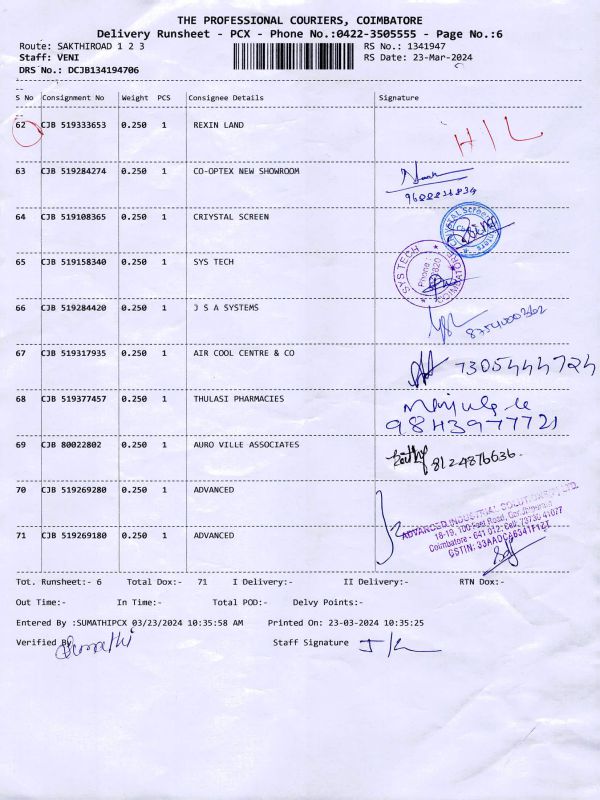 THE PROFESSIONAL COURIERS, COIMBATORE
Delivery Runsheet - PCX - Phone No.:0422-3505555 - Page No.:6
Route: SAKTHIROAD 1 2 3 RS No.: 1341947
Staff: VENI RS Date: 23-Mar-2024
DRS No.: DCJB134194706
S No Consignment No Weight PCS Consignee Details Signature
62 CJB 519333653 0.250 1 REXIN LAND H/L
63 CJB 519284274 0.250 1 CO-OPTEX NEW SHOWROOM
64 CJB 519108365 0.250 1 CRIYSTAL SCREEN
65 CJB 519158340 0.250 1 SYS TECH SYS TECH
66 CJB 519284420 0.250 1 J S A SYSTEMS
67 CJB 519317935 0.250 1 AIR COOL CENTRE & CO 7305444724
68 CJB 519377457 0.250 1 THULASI PHARMACIES
9843977721
69 CJB 80022802 0.250 1 AURO VILLE ASSOCIATES 8124876636
70 CJB 519269280 0.250 1 ADVANCED
ADVANCED INDUSTRIAL SOLUTIONS PVT LTD.
18-19, 100 Feet Road, Gandhipuram
Coimbatore - 641 012. Cell: 73730 41077
71 CJB 519269180 0.250 1 ADVANCED
Tot. Runsheet:- 6 Total Dox:- 71 I Delivery:- II Delivery:- RTN Dox:-
Out Time:- In Time:- Total POD:- Delvy Points:-
Entered By :SUMATHIPCX 03/23/2024 10:35:58 AM Printed On: 23-03-2024 10:35:25
Verified By Sumathi Staff Signature